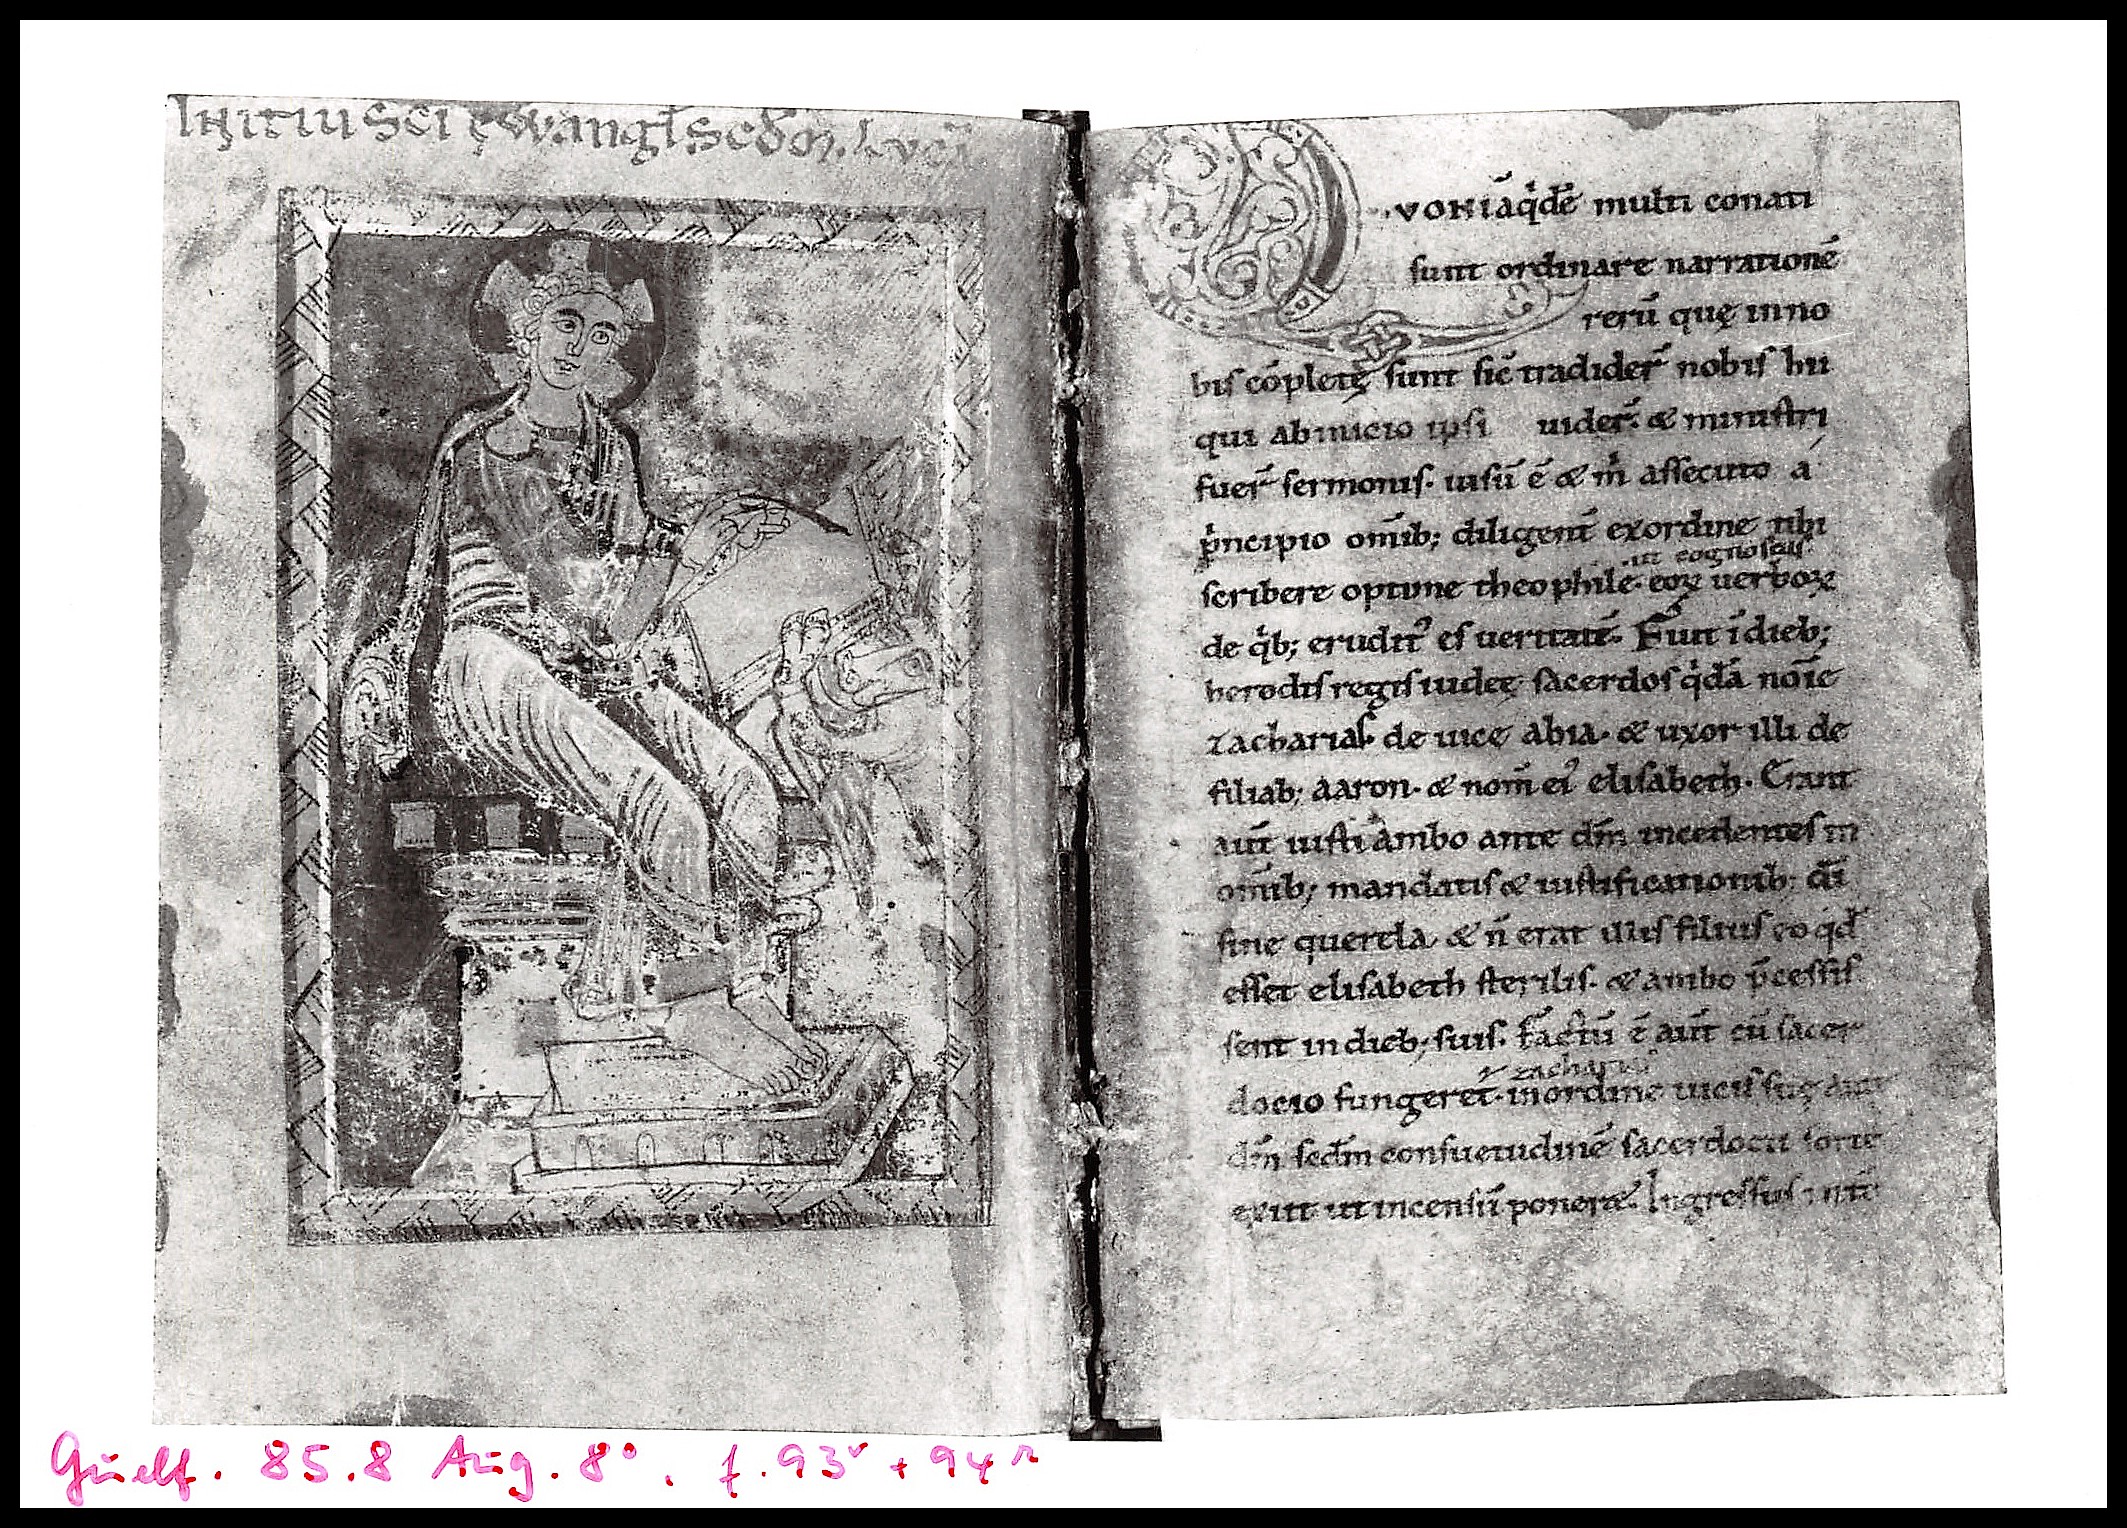 INITIU SCI EWANGL SCDM LUCĀ
QVONIĀ q̇dē multi conati
sunt ordinare narrationē
rerū quę inno
bis cōpletę sunt sic̄ tradider̄ nobis hii
qui ab inicio ipsi uider̄ & ministri
fuer̄ sermonis· uisū ē & ṁ assecuto á
ṗncipio om̄ib; diligent̄ ex ordine tibi
ut cognoscas
scribere optime theophile· eoꝝ uerboꝝ
de q̇b; erudit᾽ es ueritatē· Fuit ī dieb;
herodis regis iudeę sacerdos q̇dā noīe
zacharias· de uice abia· & uxor illi de
filiab; aaron· & nom̄ ei᾽ elisabeth· Erant
aut̄ iusti ambo ante dm̄ incedentes in
om̄ib; mandatis & iustificationib; dn̄i
sine querela· & n̄ erat illis filius eo qd̄
esset elisabeth sterilis· & ambo p̄cessis
sent in dieb; suis· Factū ē aut̄ cū sacer
zacharias
docio fungeret̄· in ordine uicis suę ante
dm̄ scd̄m consuetudinē sacerdocii sorte
exiit ut incensū poner&· Ingressus in tē
Guelf. 85.8 Aug. 8°. f. 93v + 94r